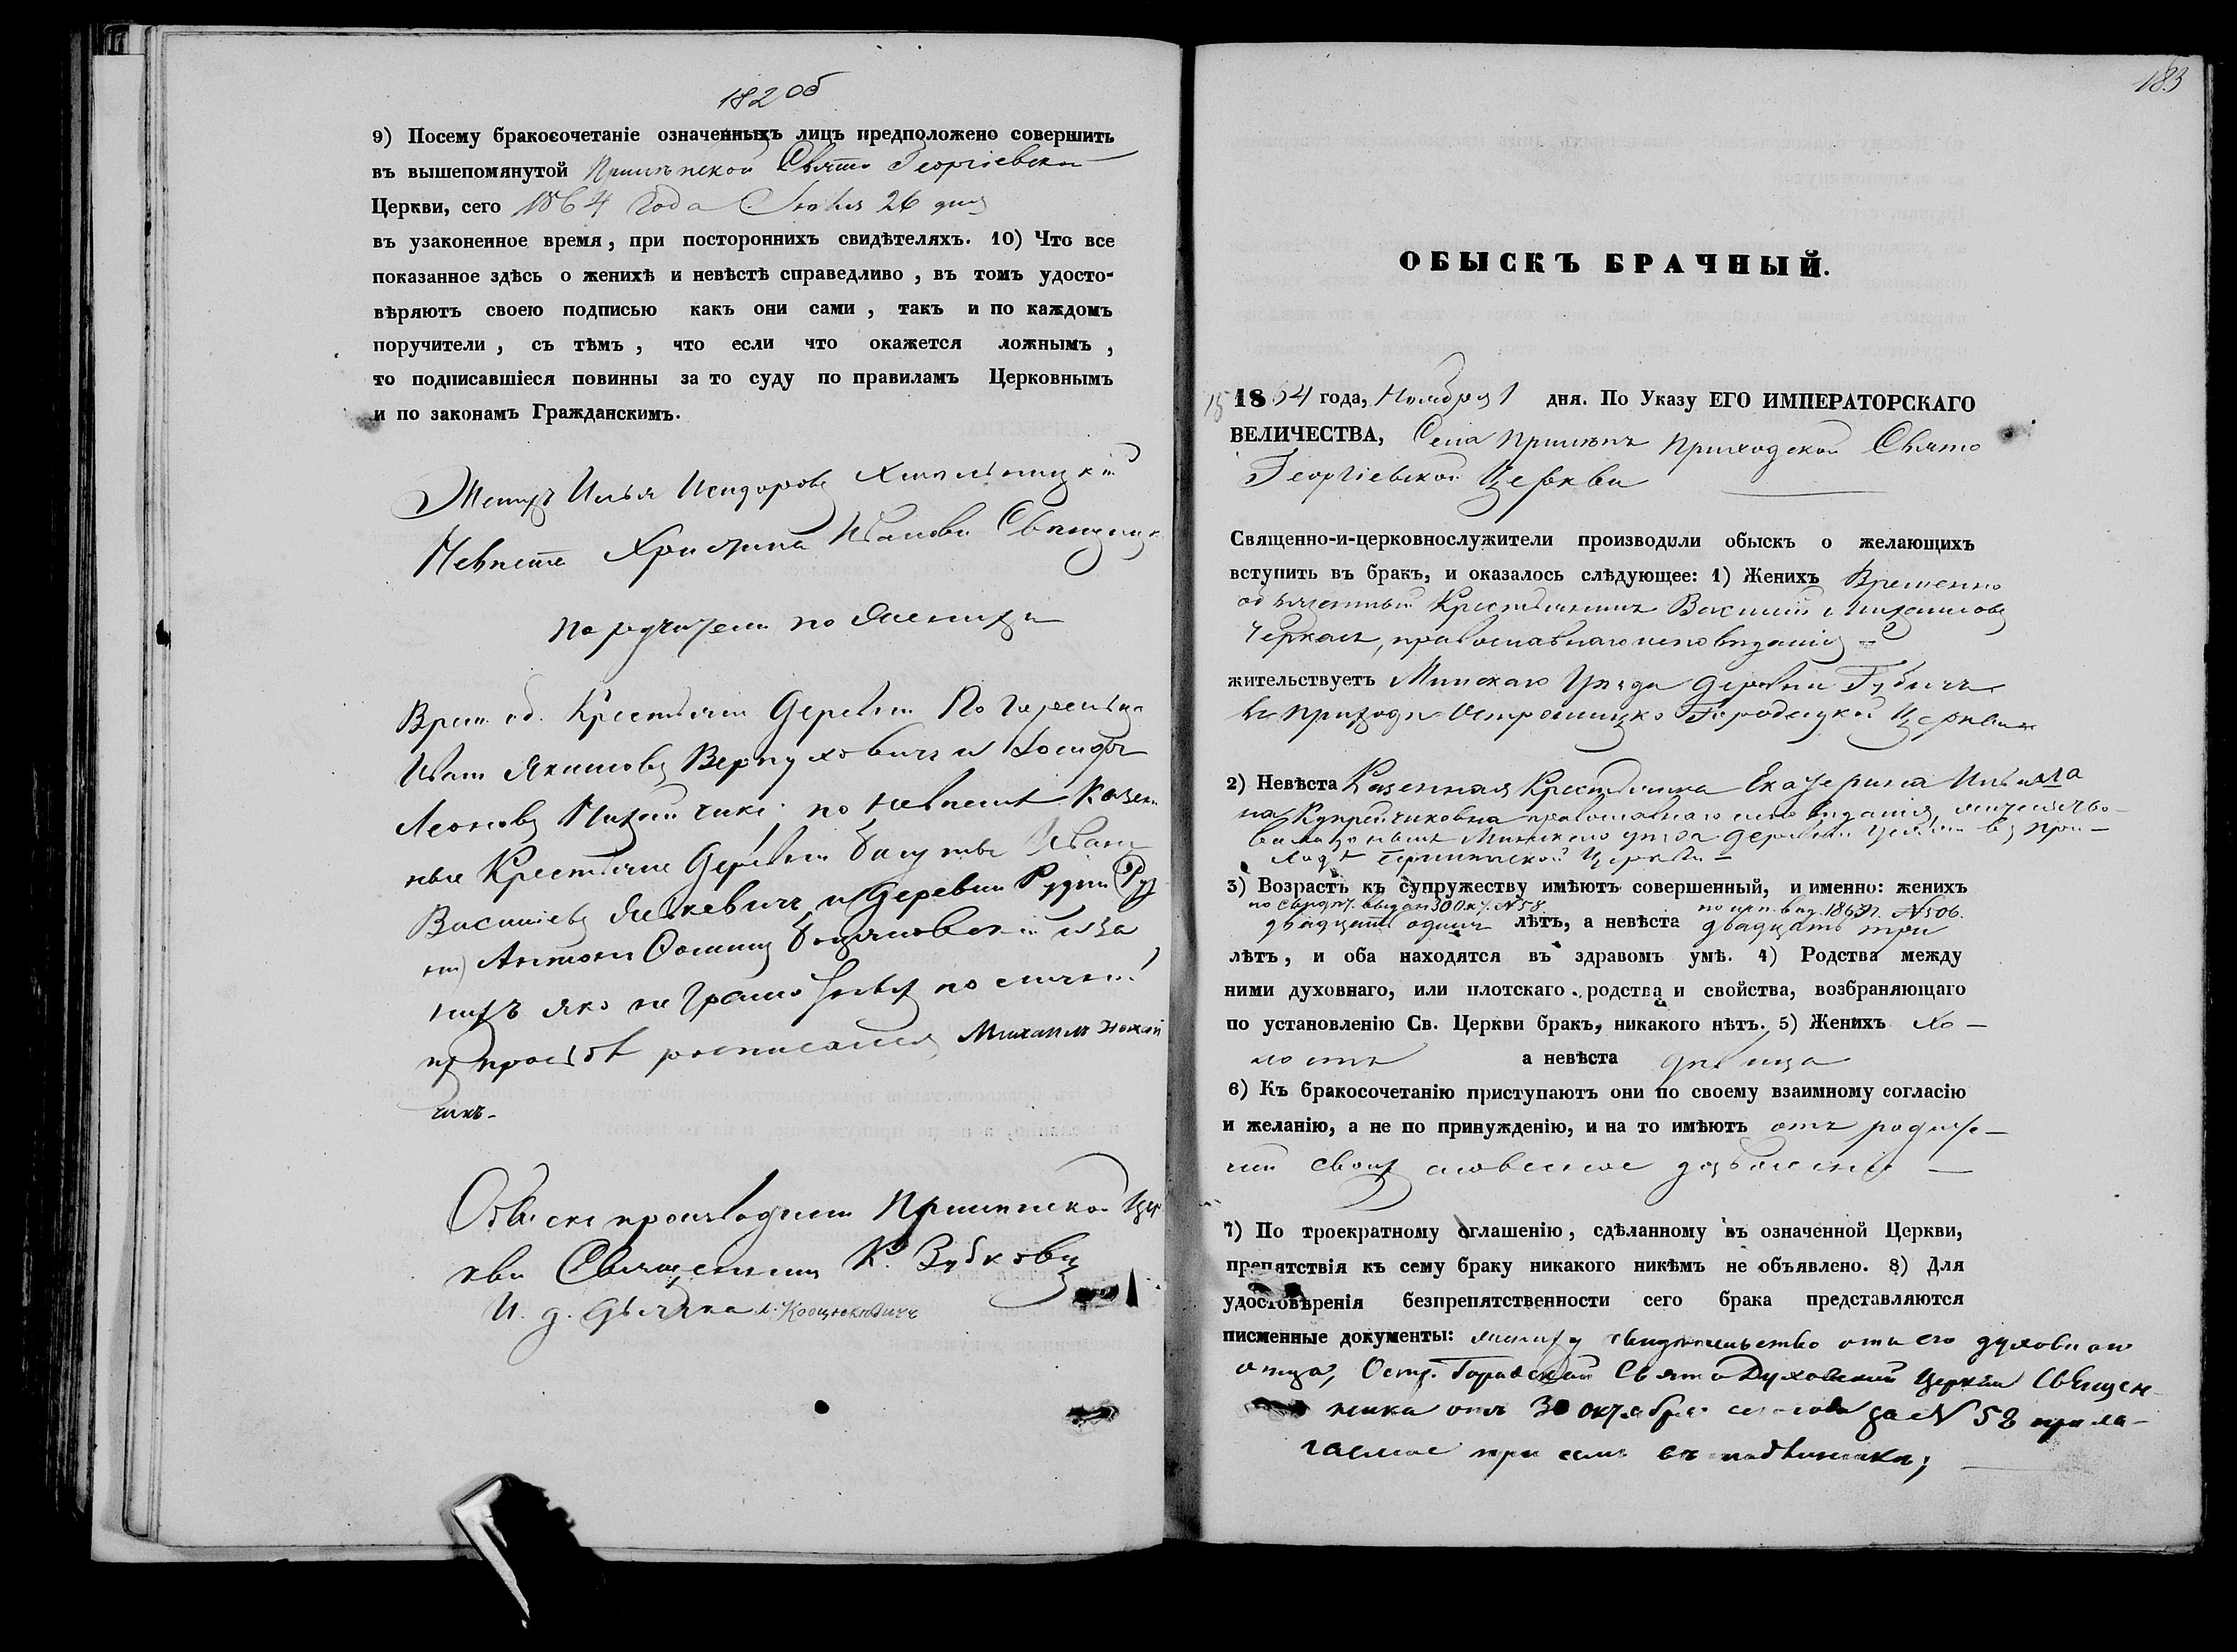 182 об
9) Посему бракосочетаніе означенныхъ лицъ предположено совершить
въ вышепомянутой Прилѣпской Свято Георгіевской
Церкви, сего 1864 года Іюля 26 дня
въ узаконенное время, при постороннихъ свидѣтеляхъ. 10) Что все
показанное здѣсь о женихѣ и невѣстѣ справедливо, въ томъ удосто-
вѣряютъ своею подписью какъ они сами, такъ и по каждомъ
поручители, съ тѣмъ, что если что окажется ложнымъ,
то подписавшіеся повинны за то суду по правиламъ Церковнымъ
и по законамъ Гражданскимъ.
Женихъ Илья Исидоровъ Хмѣльницкій
Невѣста Христина Иванова
Поручители по женихѣ
Врем. об. Крестьяне Деревни
Иванъ Якимовъ и
Леоновъ по невѣстѣ Казен-
ные Крестьяне Деревни Иванъ
Васильевъ и Деревни Рудни
Антонъ и за
нихъ яко не грамотныхъ по личной
ихъ просьбѣ росписался Михаилъ
чикъ.
Обыскъ производили Прилѣпской Цер-
кви Священникъ К. Зубковъ
И. д. дьячка
183
ОБЫСКЪ БРАЧНЫЙ.
1864 года, Ноября 1 дня. По Указу ЕГО ИМПЕРАТОРСКАГО
ВЕЛИЧЕСТВА, Села Прилѣпъ Приходской Свято
Георгіевской Церкви
Священно-и-церковнослужители производили обыскъ о желающихъ
вступить въ бракъ, и оказалось слѣдующее: 1) Женихъ Временно
обязанный Крестьянинъ Василій Михайловъ
Черкасъ, православнаго исповѣданія
жительствуетъ Минскаго Уѣзда деревни Губичъ
въ приходѣ Острошицко Городецкой Церкви
2) Невѣста Казенная Крестьянка Екатерина Ильина
Купрейчиковна православнаго исповѣданія, жительство-
вала до нынѣ Минскаго уѣзда деревни въ при-
ходѣ Прилѣпской Церкви
3) Возрастъ къ супружеству имѣютъ совершенный, и именно: женихъ
по свидѣт. выдан 30 Окт. № 58. по исп. вѣд. 1863 г. № 506.
двадцать одинъ лѣтъ, а невѣста двадцать три
лѣтъ, и оба находятся въ здравомъ умѣ. 4) Родства между
ними духовнаго, или плотскаго родства и свойства, возбраняющаго
по установленію Св. Церкви бракъ, никакого нѣтъ. 5) Женихъ хо-
лостъ а невѣста дѣвица
6) Къ бракосочетанію приступаютъ они по своему взаимному согласію
и желанію, а не по принужденію, и на то имѣютъ отъ родите-
лей своихъ словесное дозволеніе
7) По троекратному оглашенію, сдѣланному въ означенной Церкви,
препятствія къ сему браку никакого никѣмъ не объявлено. 8) Для
удостовѣренія безпрепятственности сего брака представляются
писменные документы: жениху свидѣтельство отъ его духовнаго
отца, Остр. Городецкой Свято Духовской Церкви Священ-
ника отъ 30 октября сего года за № 58 прила-
гаемое при семъ въ подлинникѣ;